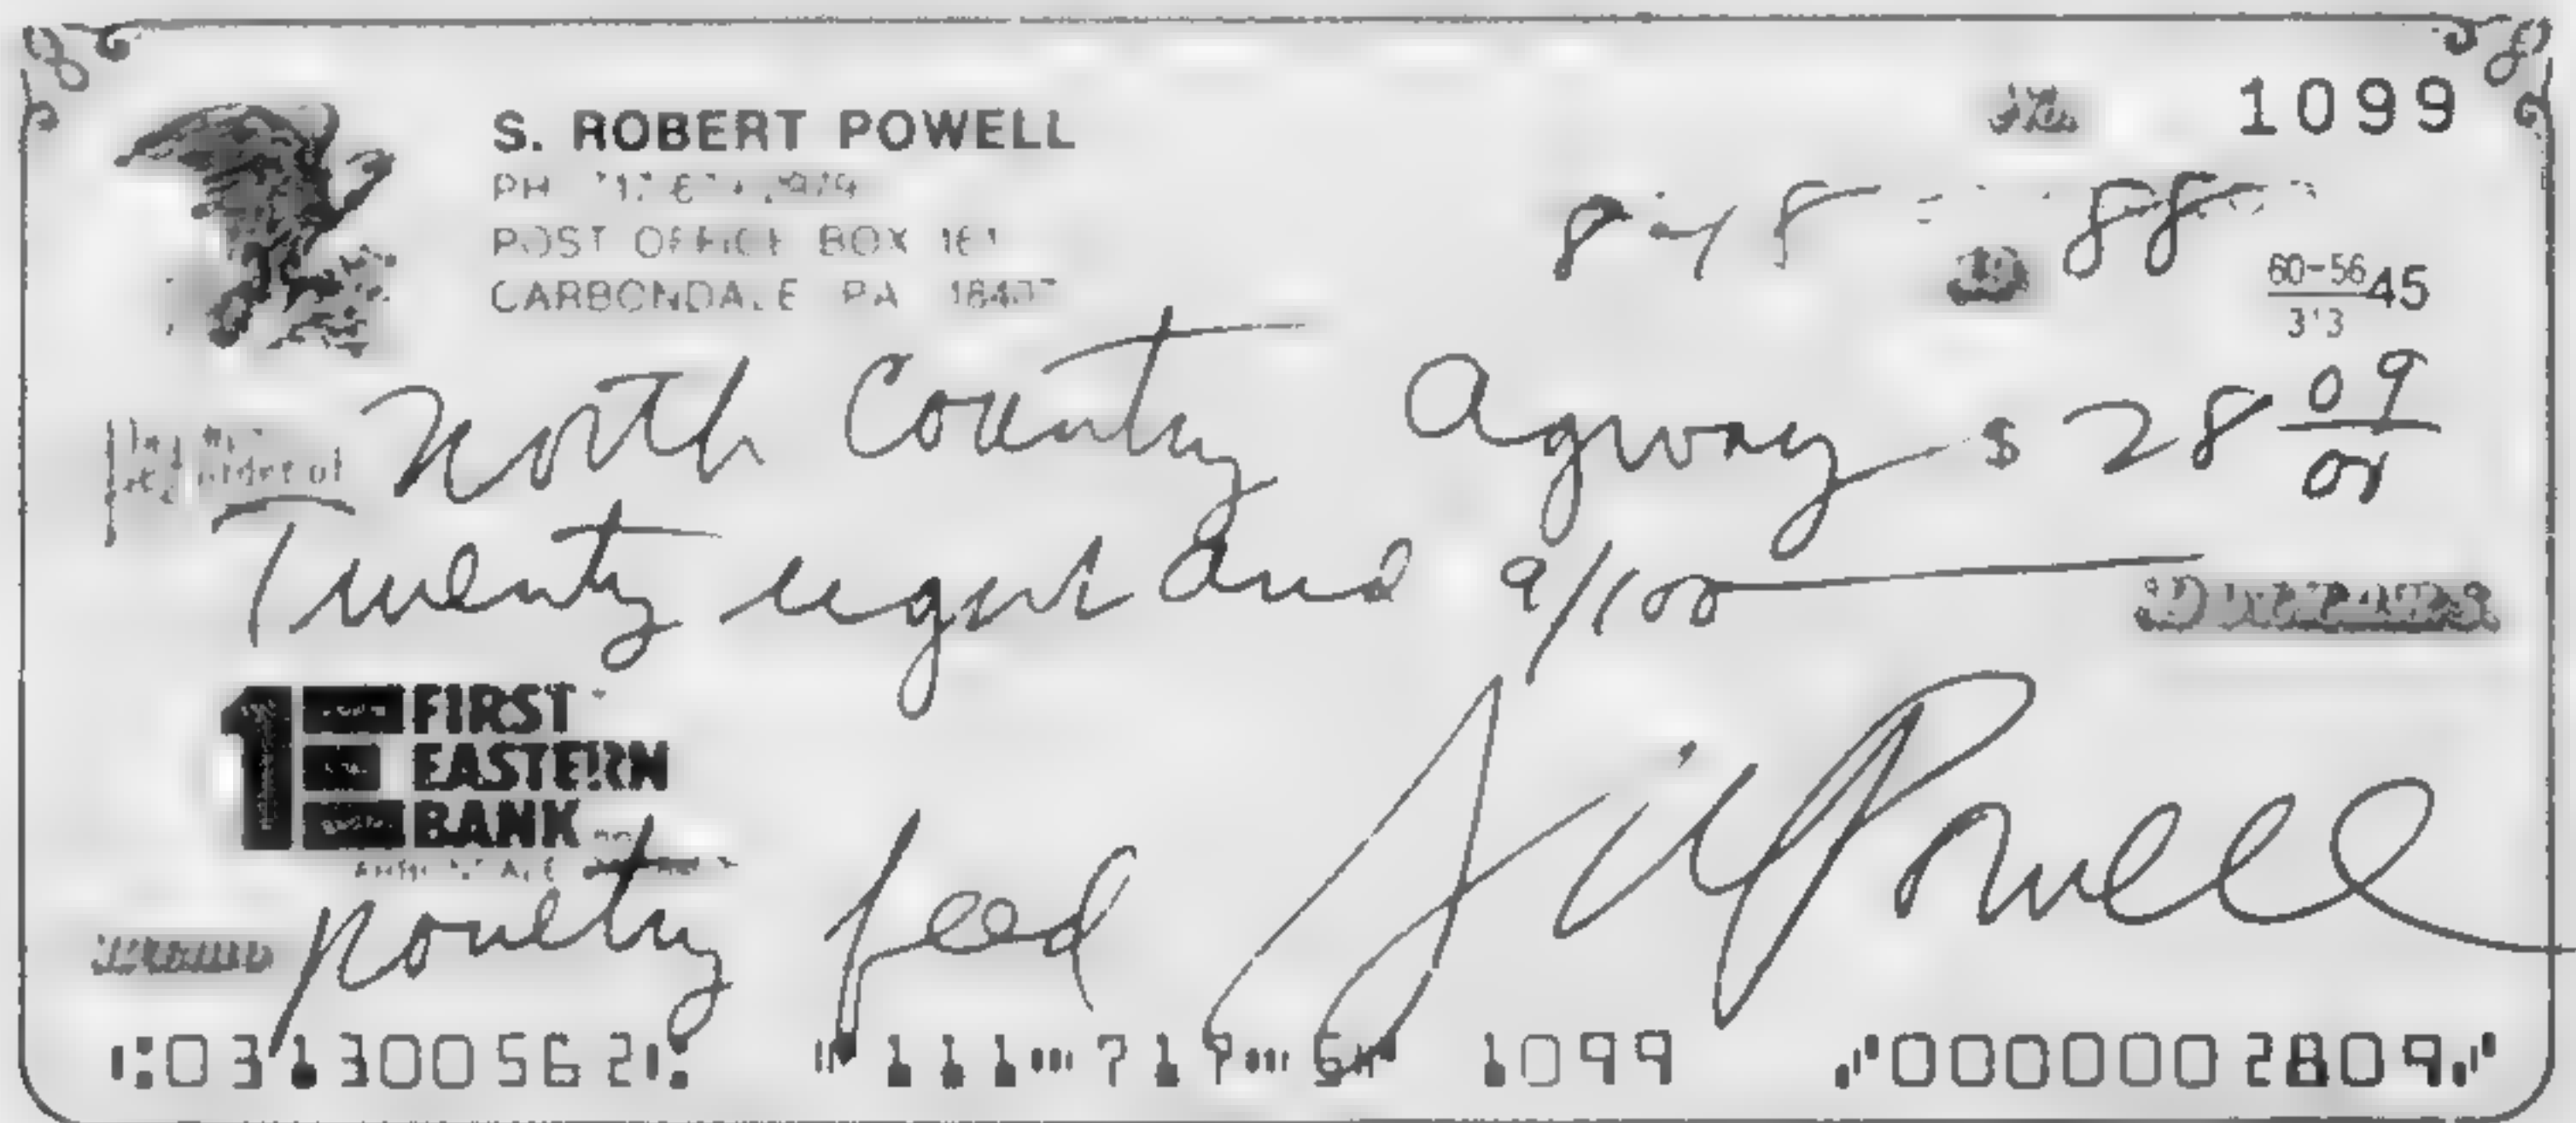 No. 1099
S. ROBERT POWELL
PH
POST OFFICE BOX 161
CARBONDALE PA 18407
8-18-88
19
60-56 45
313
Pay to the order of North County Agway $ 28 09/00
Twenty eight and 9/100 DOLLARS
1E FIRST
EASTERN
BANK
poultry feed Powell
⑆031300562⑆ 1099 ⑈0000002809⑈